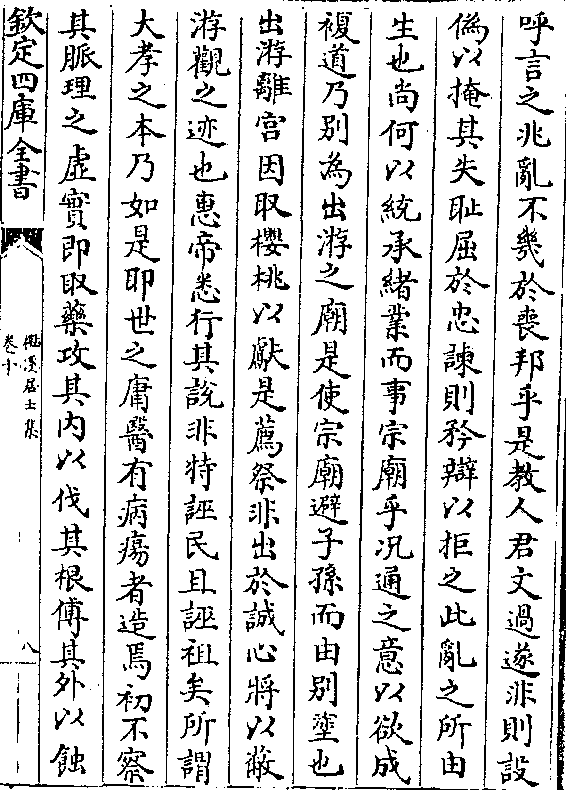 呼言之兆亂不幾於喪邦乎是教人君文過遂非則設
偽以掩其失耻屈於忠諫則矜辯以拒之此亂之所由
生也尚何以統承緒業而事宗廟乎况通之意以欲成
複道乃別為出游之廟是使宗廟避子孫而由別壅也
出游離宫因取櫻桃以獻是薦祭非出於誠心將以蔽
游觀之迹也惠帝悉行其說非特誣民且誣祖矣所謂
大孝之本乃如是耶世之庸醫有病瘍者造焉初不察
其脈理之虛實即取藥攻其内以伐其根傅其外以蝕
欽定四庫全書
溪居士集
卷十
八